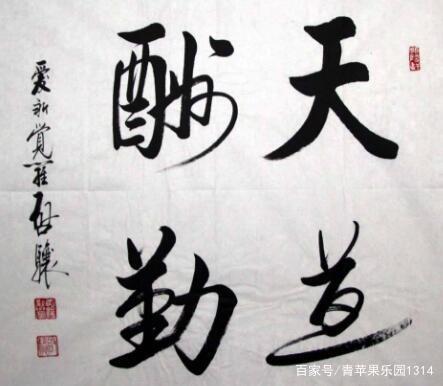 天道
酬勤
愛新覺羅启驤
百家号/青苹果乐园1314